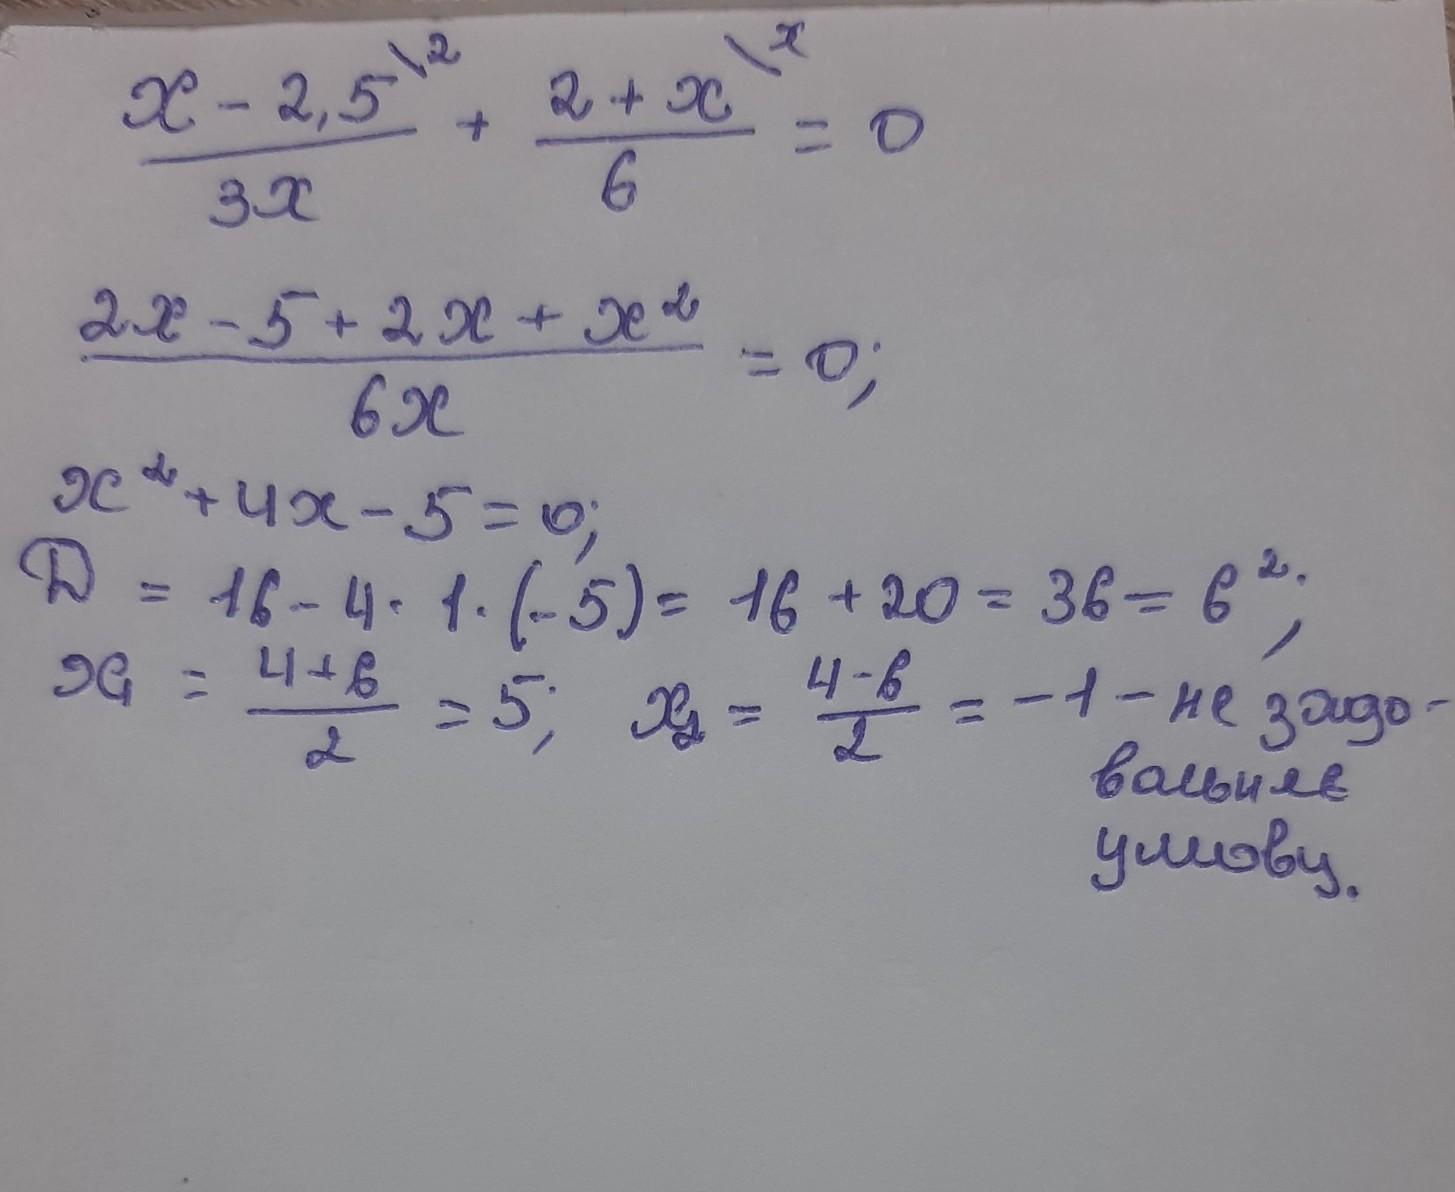 x - 2,5\2 / 3x + 2 + x\x / 6 = 0
2x - 5 + 2x + x² / 6x = 0;
x² + 4x - 5 = 0;
D = 16 - 4 · 1 · (-5) = 16 + 20 = 36 = 6²;
x₁ = 4+6 / 2 = 5; x₂ = 4-6 / 2 = -1 - не задо-
вольняє
умову.